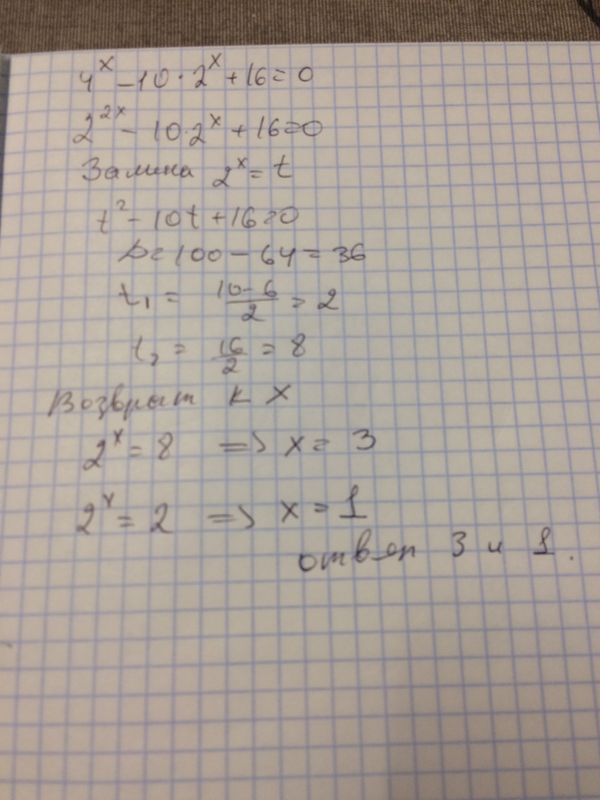 4^x - 10 · 2^x + 16 = 0
2^2x - 10 · 2^x + 16 = 0
Замена 2^x = t
t² - 10t + 16 = 0
D = 100 - 64 = 36
t₁ = (10 - 6)/2 = 2
t₂ = 16/2 = 8
Возврат к X
2^x = 8 => x = 3
2^x = 2 => x = 1
ответ 3 и 1.